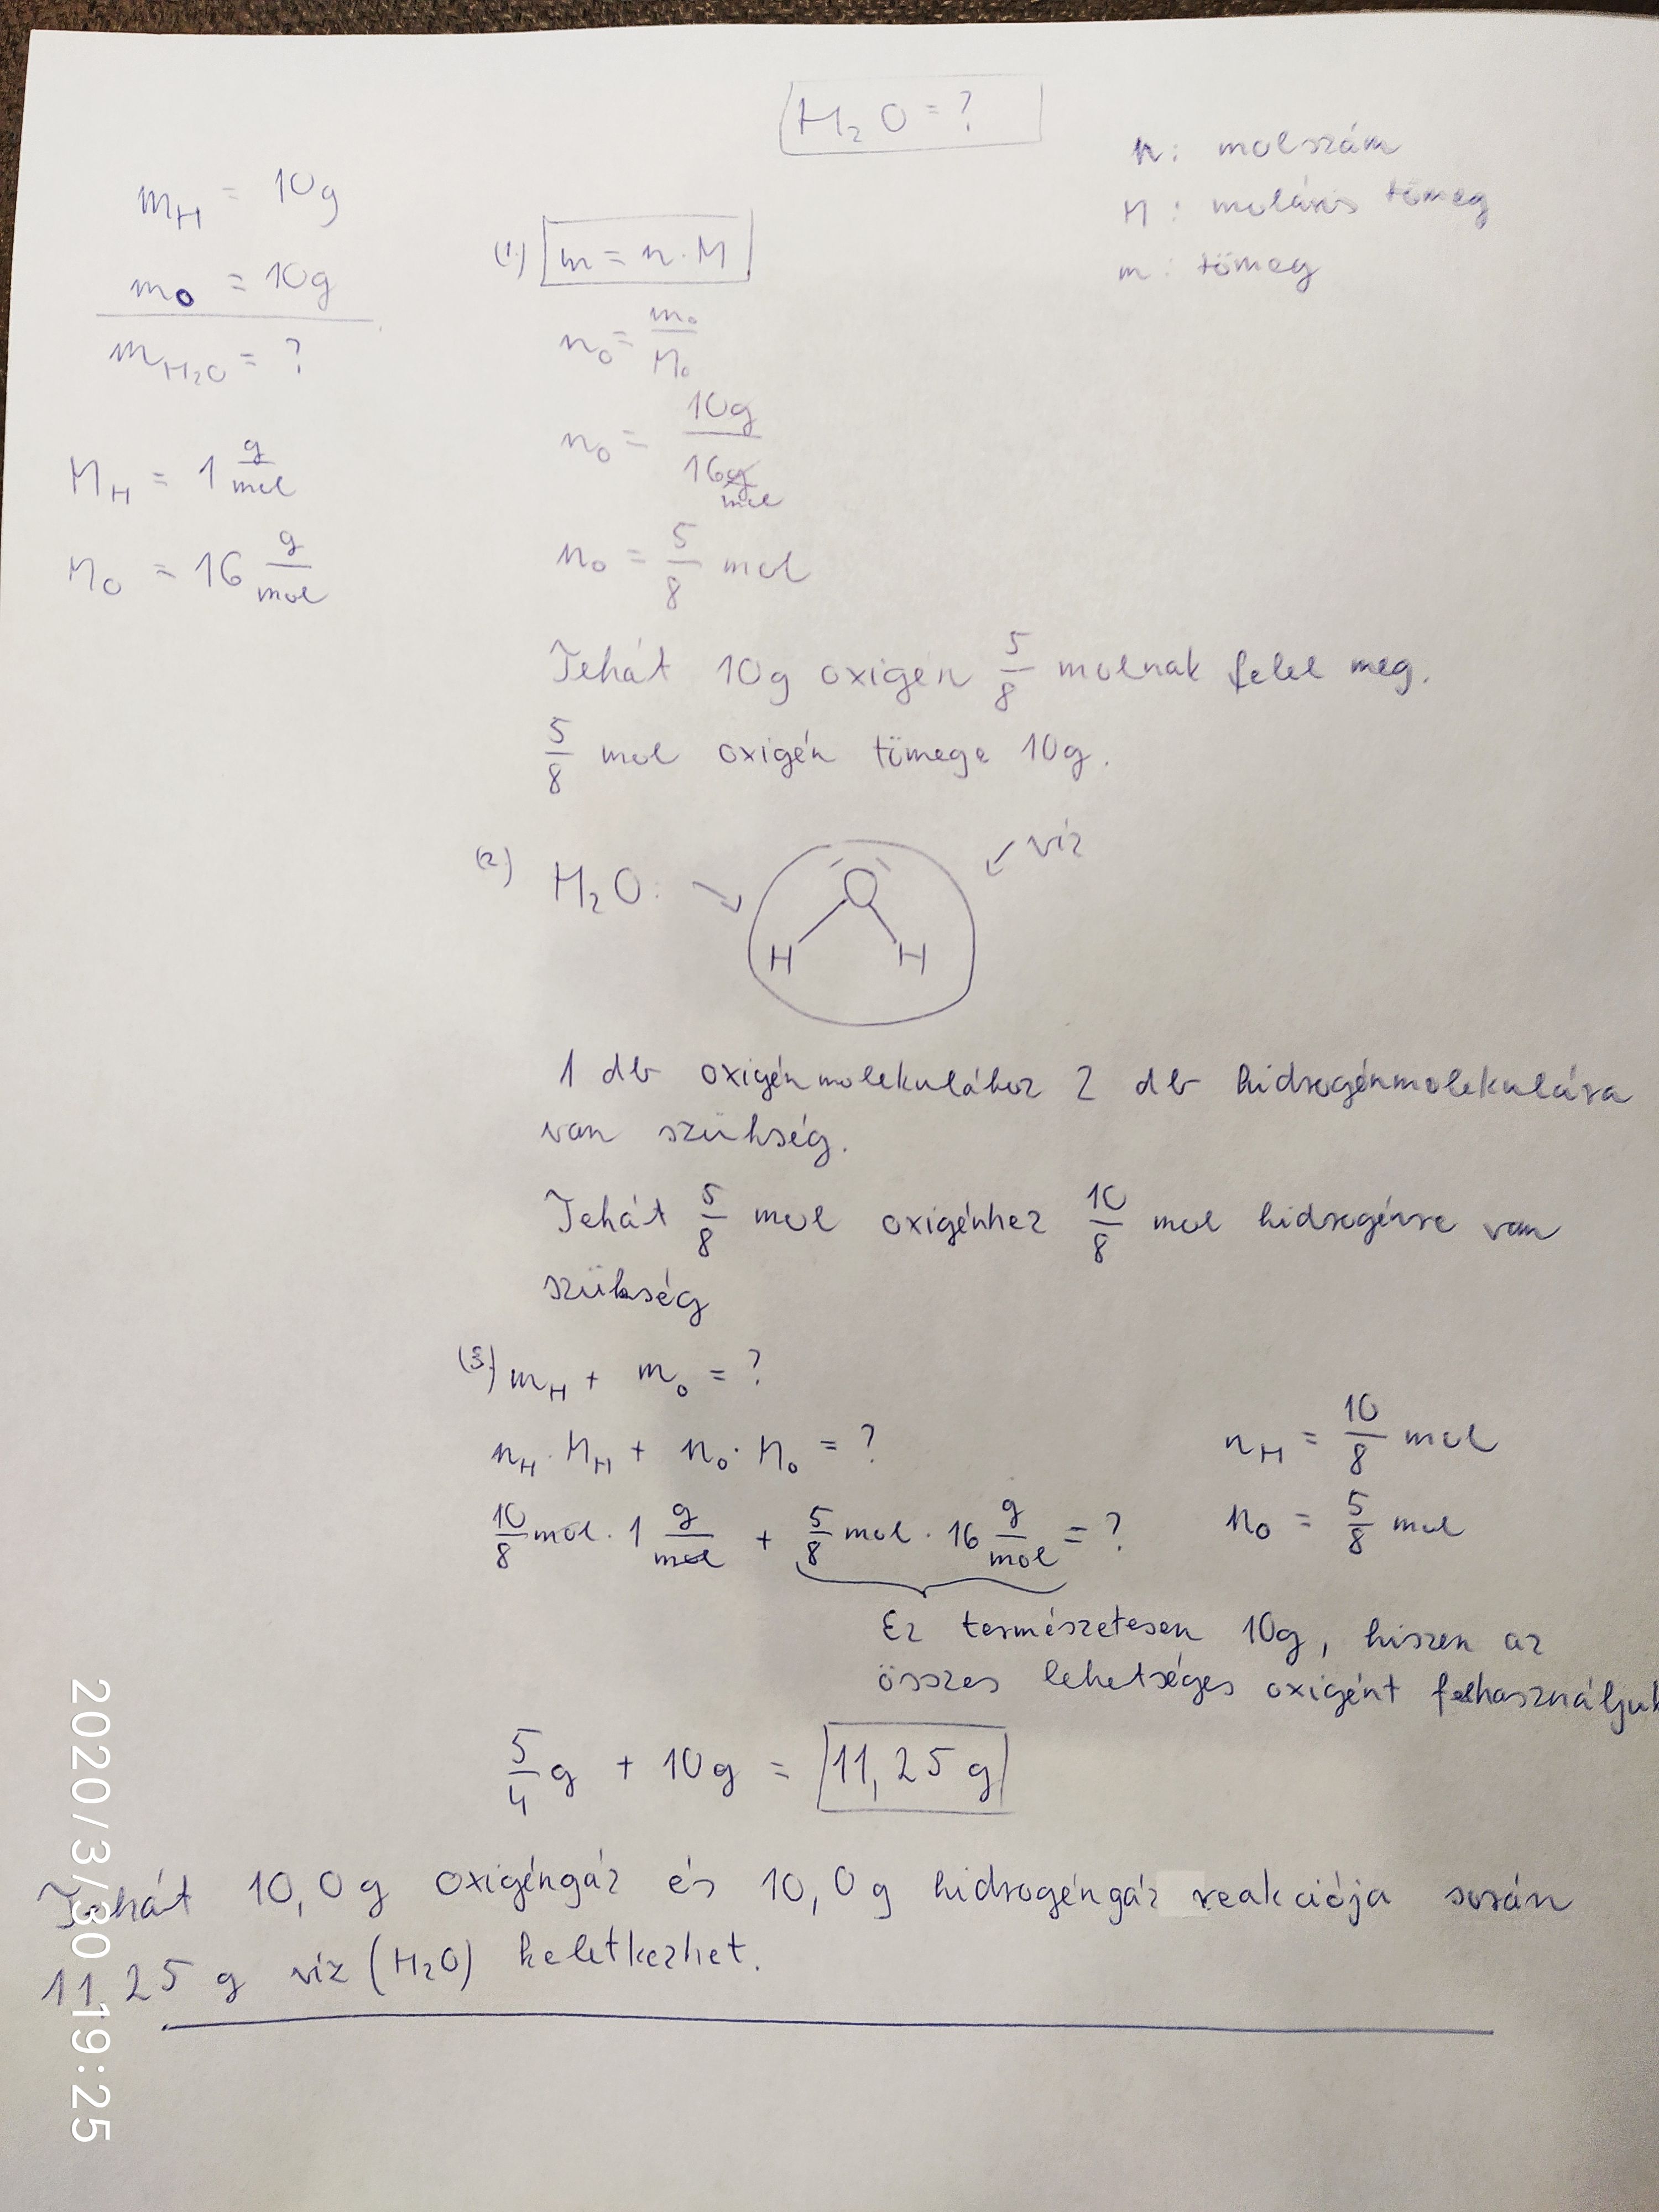 H₂O = ?
n: molszám
M: moláris tömeg
m: tömeg
m_H = 10g
m_O = 10g
m_H₂O = ?
M_H = 1 g/mol
M_O = 16 g/mol
(1.) m = n · M
n_O = m_O/M_O
n_O = 10g / 16 g/mol
n_O = 5/8 mol
Tehát 10g oxigén 5/8 molnak felel meg.
5/8 mol oxigén tömege 10g.
(2.) H₂O:
víz
O
H H
1 db oxigénmolekulához 2 db hidrogénmolekulára
van szükség.
Tehát 5/8 mol oxigénhez 10/8 mol hidrogénre van
szükség
(3.) m_H + m_O = ?
n_H · M_H + n_O · M_O = ?
n_H = 10/8 mol
10/8 mol · 1 g/mol + 5/8 mol · 16 g/mol = ?
n_O = 5/8 mol
Ez természetesen 10g, hiszen az
összes lehetséges oxigént felhasználjuk
5/4 g + 10g = 11,25 g
Tehát 10,0g oxigéngáz és 10,0g hidrogéngáz reakciója során
11,25 g víz (H₂O) keletkezhet.
2020/3/30 19:25